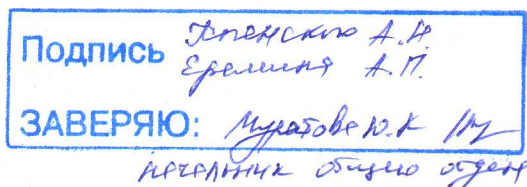 Подпись Успенского А.Н.
Еремина А.П.
ЗАВЕРЯЮ: Муратова Ю.К
начальник общего отдела